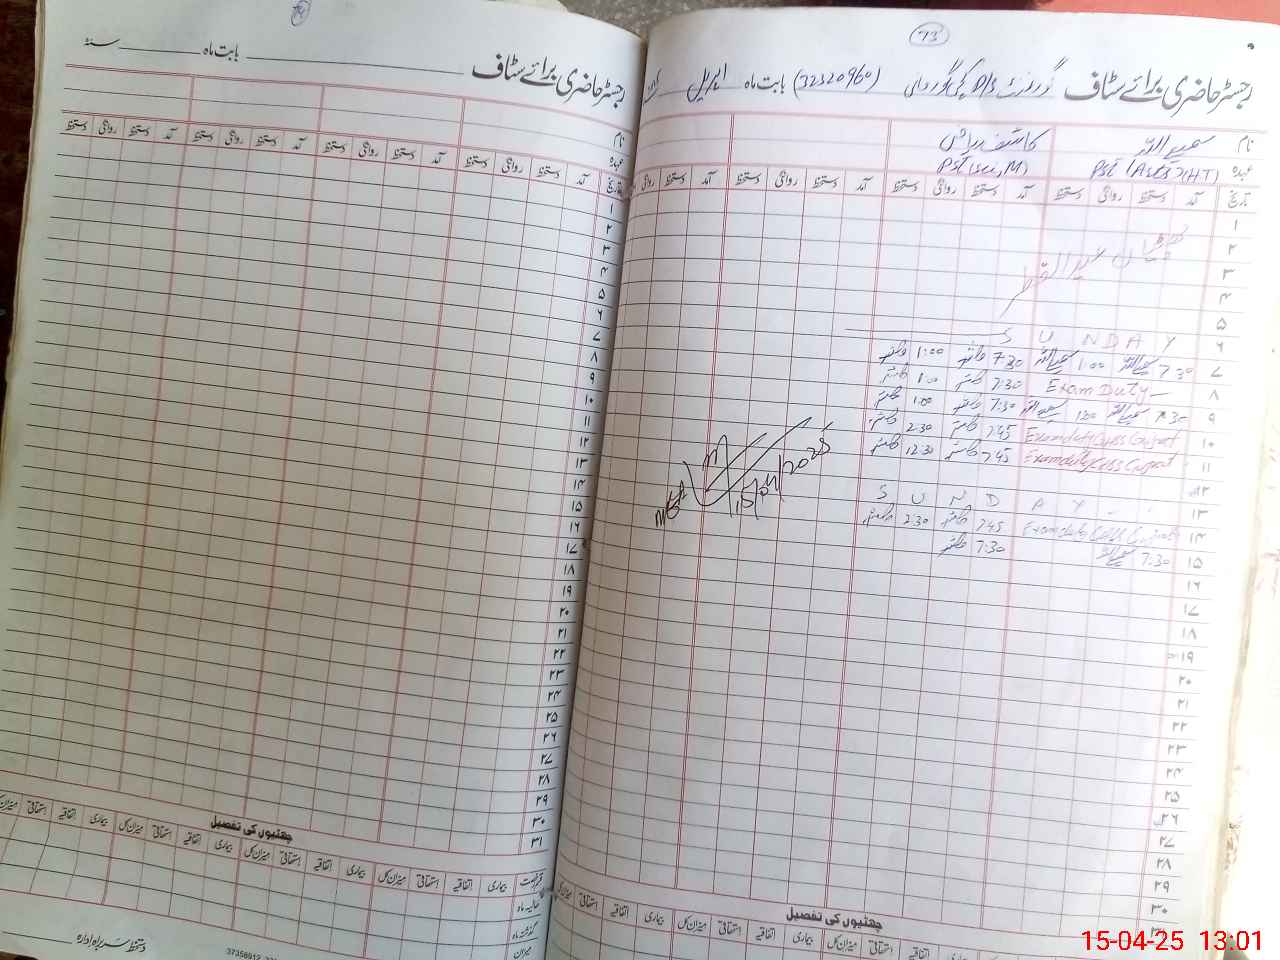 رجسٹر حاضری برائے سٹاف بابت ماہ سنہ
نام
عہدہ
تاریخ آمد دستخط روانگی دستخط آمد دستخط روانگی دستخط آمد دستخط روانگی دستخط آمد دستخط روانگی دستخط
۱
۲
۳
۴
۵
۶
۷
۸
۹
۱۰
۱۱
۱۲
۱۳
۱۴
۱۵
۱۶
۱۷
۱۸
۱۹
۲۰
۲۱
۲۲
۲۳
۲۴
۲۵
۲۶
۲۷
۲۸
۲۹
۳۰
۳۱
چھٹیوں کی تفصیل
قسم رخصت بیماری اتفاقیہ استحقاقی میزان کل بیماری اتفاقیہ استحقاقی میزان کل بیماری اتفاقیہ استحقاقی میزان کل بیماری اتفاقیہ استحقاقی میزان کل
حالیہ ماہ
گذشتہ ماہ
میزان
دستخط سربراہ ادارہ
37356912
73
رجسٹر حاضری برائے سٹاف گورنمنٹ P/S (32320960) بابت ماہ اپریل
نام سمیع اللہ کاشف ریاض
عہدہ PST
تاریخ آمد دستخط روانگی دستخط آمد دستخط روانگی دستخط آمد دستخط روانگی دستخط آمد دستخط روانگی
۱
۲
۳ عید الفطر
۴
۵
۶ SUNDAY
۷ 7:30 سمیع اللہ 1:00 سمیع اللہ 7:30 کاشف 1:00 کاشف
۸ Exam Duty 7:30 کاشف 1:00 کاشف
۹ 7:30 سمیع اللہ 1:00 سمیع اللہ 7:30 کاشف 1:00 کاشف
۱۰ Exam duty Gujrat 7:45 کاشف 2:30 کاشف
۱۱ Exam duty Gujrat 7:45 کاشف 12:30 کاشف
۱۲
۱۳ SUNDAY
۱۴ Exam duty Gujrat 7:45 کاشف 2:30 کاشف
۱۵ 7:30 سمیع اللہ 7:30 کاشف
MEA 15/04/2025
۱۶
۱۷
۱۸
۱۹
۲۰
۲۱
۲۲
۲۳
۲۴
۲۵
۲۶
۲۷
۲۸
۲۹
۳۰
چھٹیوں کی تفصیل
اتفاقیہ استحقاقی میزان کل بیماری اتفاقیہ استحقاقی میزان کل بیماری اتفاقیہ استحقاقی
15-04-25 13:01